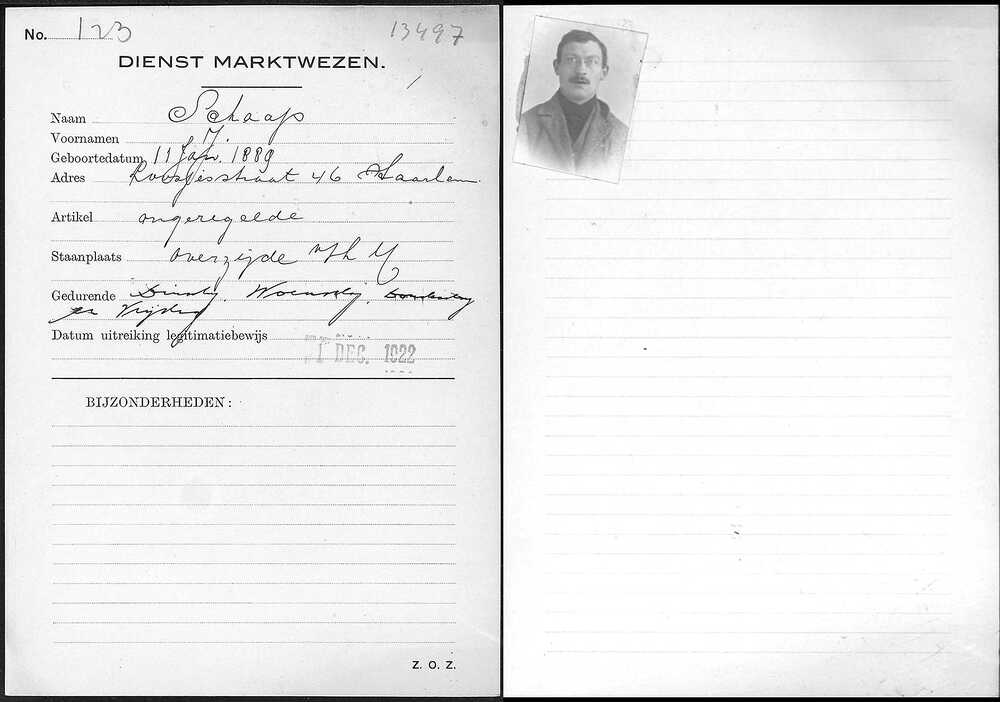 No. 123
13497
DIENST MARKTWEZEN.
Naam Schaap
Voornamen J.
Geboortedatum 11 Jan. 1889
Adres Roosjesstraat 46 Haarlem
Artikel ongeregelde
Staanplaats overzijde
Gedurende Dinsdag, Woensdag, Donderdag
en Vrijdag
Datum uitreiking legitimatiebewijs
1 DEC. 1922
BIJZONDERHEDEN:
Z. O. Z.